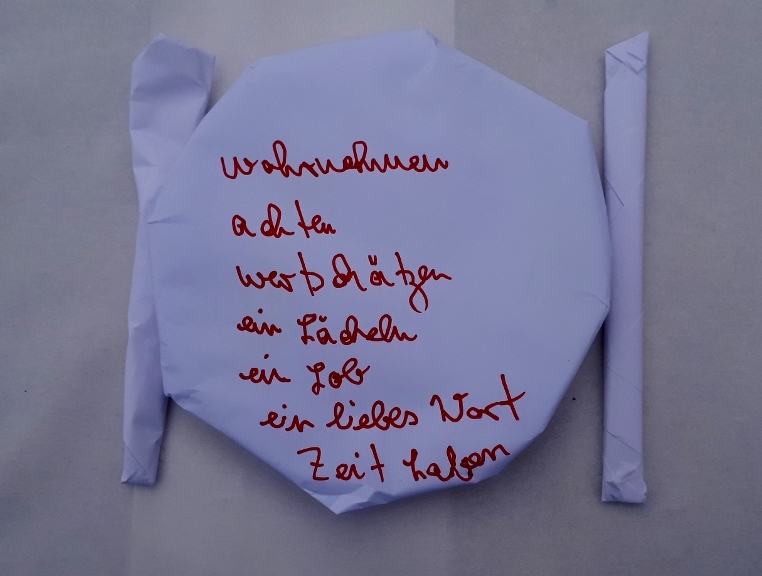 wahrnehmen
achten
wertschätzen
ein Lächeln
ein Lob
ein liebes Wort
Zeit haben